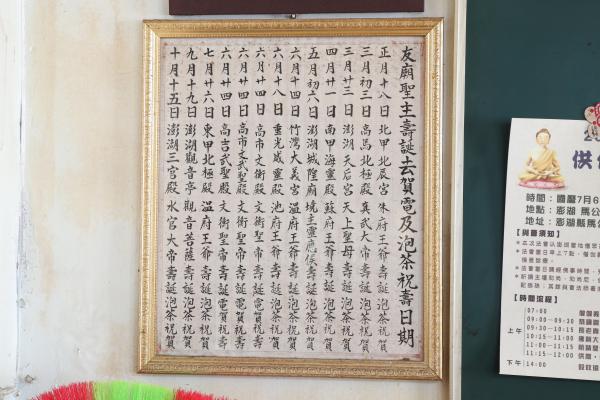 友廟聖主壽誕去賀電及泡茶祝壽日期
正月十八日 北甲北辰宮 朱府王爺壽誕泡茶祝賀
三月初三日 高馬北極殿 真武大帝壽誕泡茶祝賀
三月廿三日 澎湖天后宮 天上聖母壽誕泡茶祝賀
四月廿一日 南甲海靈殿 蘇府王爺壽誕泡茶祝賀
五月初六日 澎湖城隍廟 境主靈應侯壽誕泡茶祝賀
六月十四日 竹灣大義宮 溫府王爺壽誕泡茶祝賀
六月十八日 重光威靈殿 池府王爺壽誕泡茶祝賀
六月廿四日 高市文衡殿 文衡聖帝壽誕電賀祝壽
六月廿四日 高市文武聖殿 文衡聖帝壽誕電賀祝壽
六月廿四日 高吉武聖殿 文衡聖帝壽誕電賀祝壽
七月廿六日 東甲北極殿 溫府王爺壽誕泡茶祝賀
九月十九日 澎湖觀音亭 觀音菩薩壽誕泡茶祝賀
十月十五日 澎湖三官殿 水官大帝壽誕泡茶祝賀
供
時間：國曆7月6
地點：澎湖 馬公
地址：澎湖縣馬公
【與會須知】
【時間流程】
上午
07:00
09:00--09:30
09:30--10:15
10:15--11:00
11:00--11:15
11:15--12:00
下午 14:00